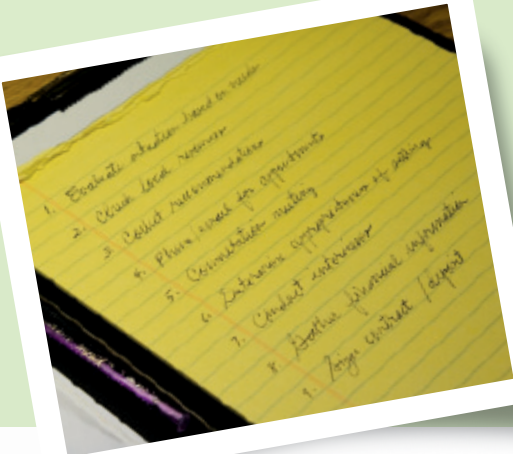 1. Evaluate situation based on needs
2. Cover local resources
3. Collect recommendations
4. Phone/email for appointments
5. Consultation meeting
6. Determine appropriateness of setting
7. Conduct interviews
8. Gather financial information
9. Sign contract /